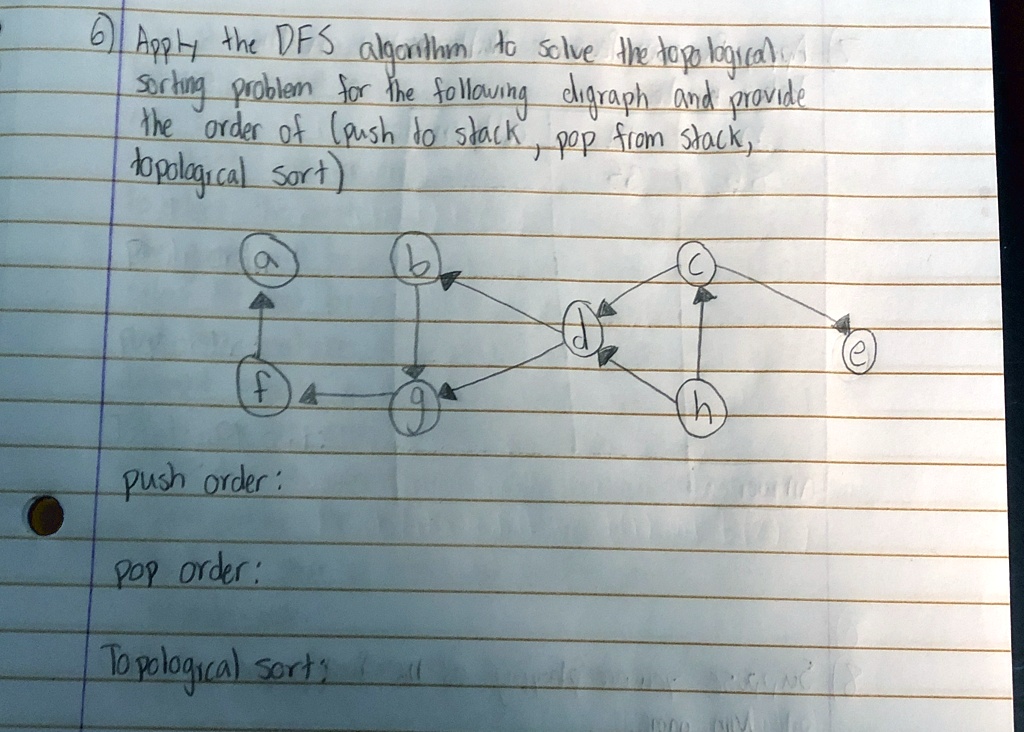 6) Apply the DFS algorithm to solve the topological
sorting problem for the following digraph and provide
the order of (push to stack, pop from stack,
topological sort)
a
b
c
d
e
f
g
h
push order:
pop order:
Topological sort: